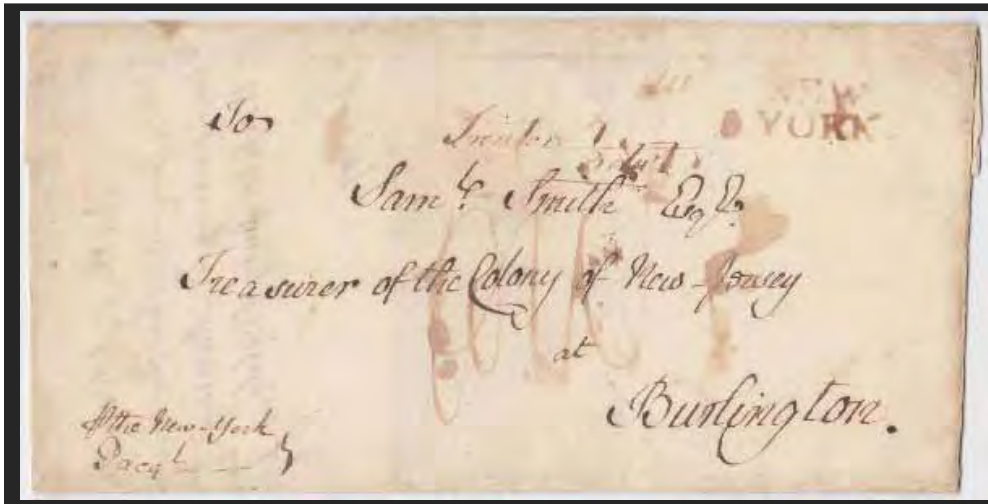 NEW
To YORK
Saml. Smith Esqr.
Treasurer of the Colony of New-Jersey
at
Burlington.
the New-York